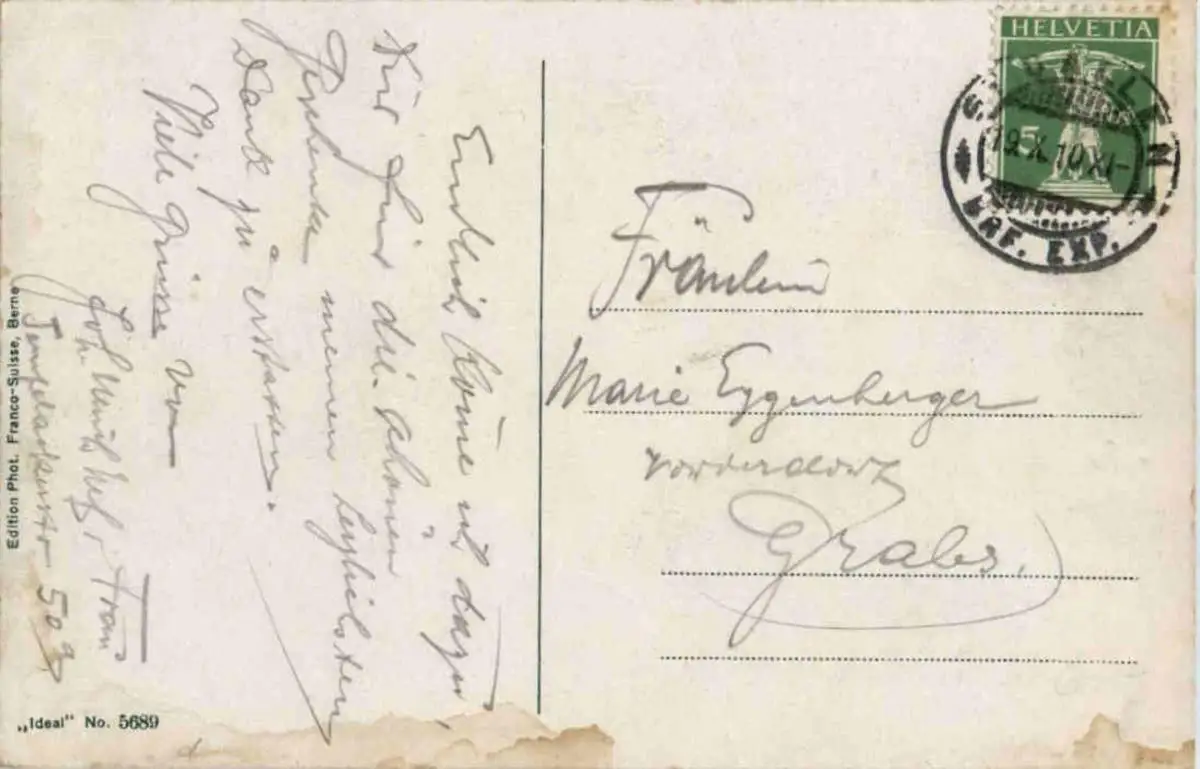 Endlich komme ich dazu,
für die schönen
Geschenke meinen herzlichsten
Dank zu erstatten.
Viele Grüsse von
Frau
50a
Fräulein
Marie Eggenberger
Vorderdorf
Grabs.
HELVETIA
5
ST. GALLEN
19.X.10.XI-
BRF. EXP.
Edition Phot. Franco-Suisse, Berne
„Ideal" No. 5689